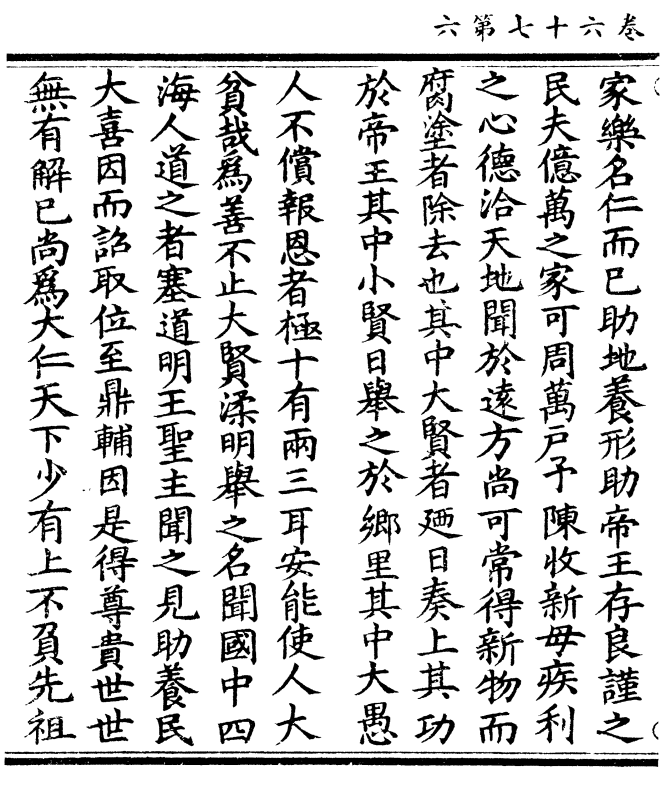 卷六十七第六
家樂名仁而已助地養形助帝王存良謹之
民夫億萬之家可周萬戶予陳收新毋疾利
之心德洽天地聞於遠方尚可常得新物而
腐塗者除去也其中大賢者迺日奏上其功
於帝王其中小賢日舉之於鄉里其中大愚
人不償報恩者極十有兩三耳安能使人大
貧哉為善不止大賢渘明舉之名聞國中四
海人道之者塞道明王聖主聞之見助養民
大喜因而詔取位至鼎輔因是得尊貴世世
無有解已尚為大仁天下少有上不負先祖